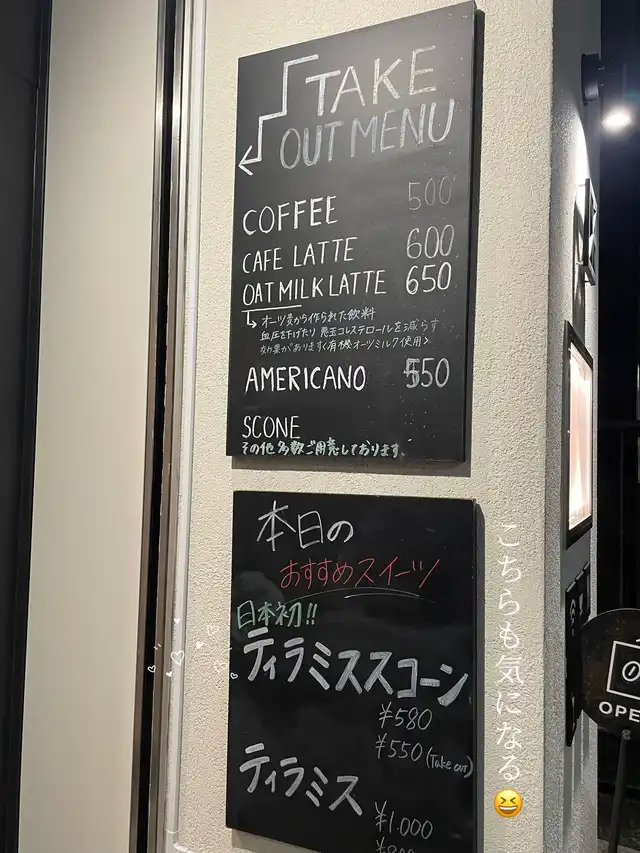 TAKE
OUT MENU
COFFEE 500
CAFE LATTE 600
OAT MILK LATTE 650
オーツ麦から作られた飲料
血圧を下げたり 悪玉コレステロールを減らす
効果があります<有機オーツミルク使用>
AMERICANO 550
SCONE
その他 多数ご用意しております。
本日の
おすすめスイーツ
日本初!!
ティラミススコーン
¥580
¥550 (Take out)
ティラミス
¥1.000
こちらも気になる😆
OPE